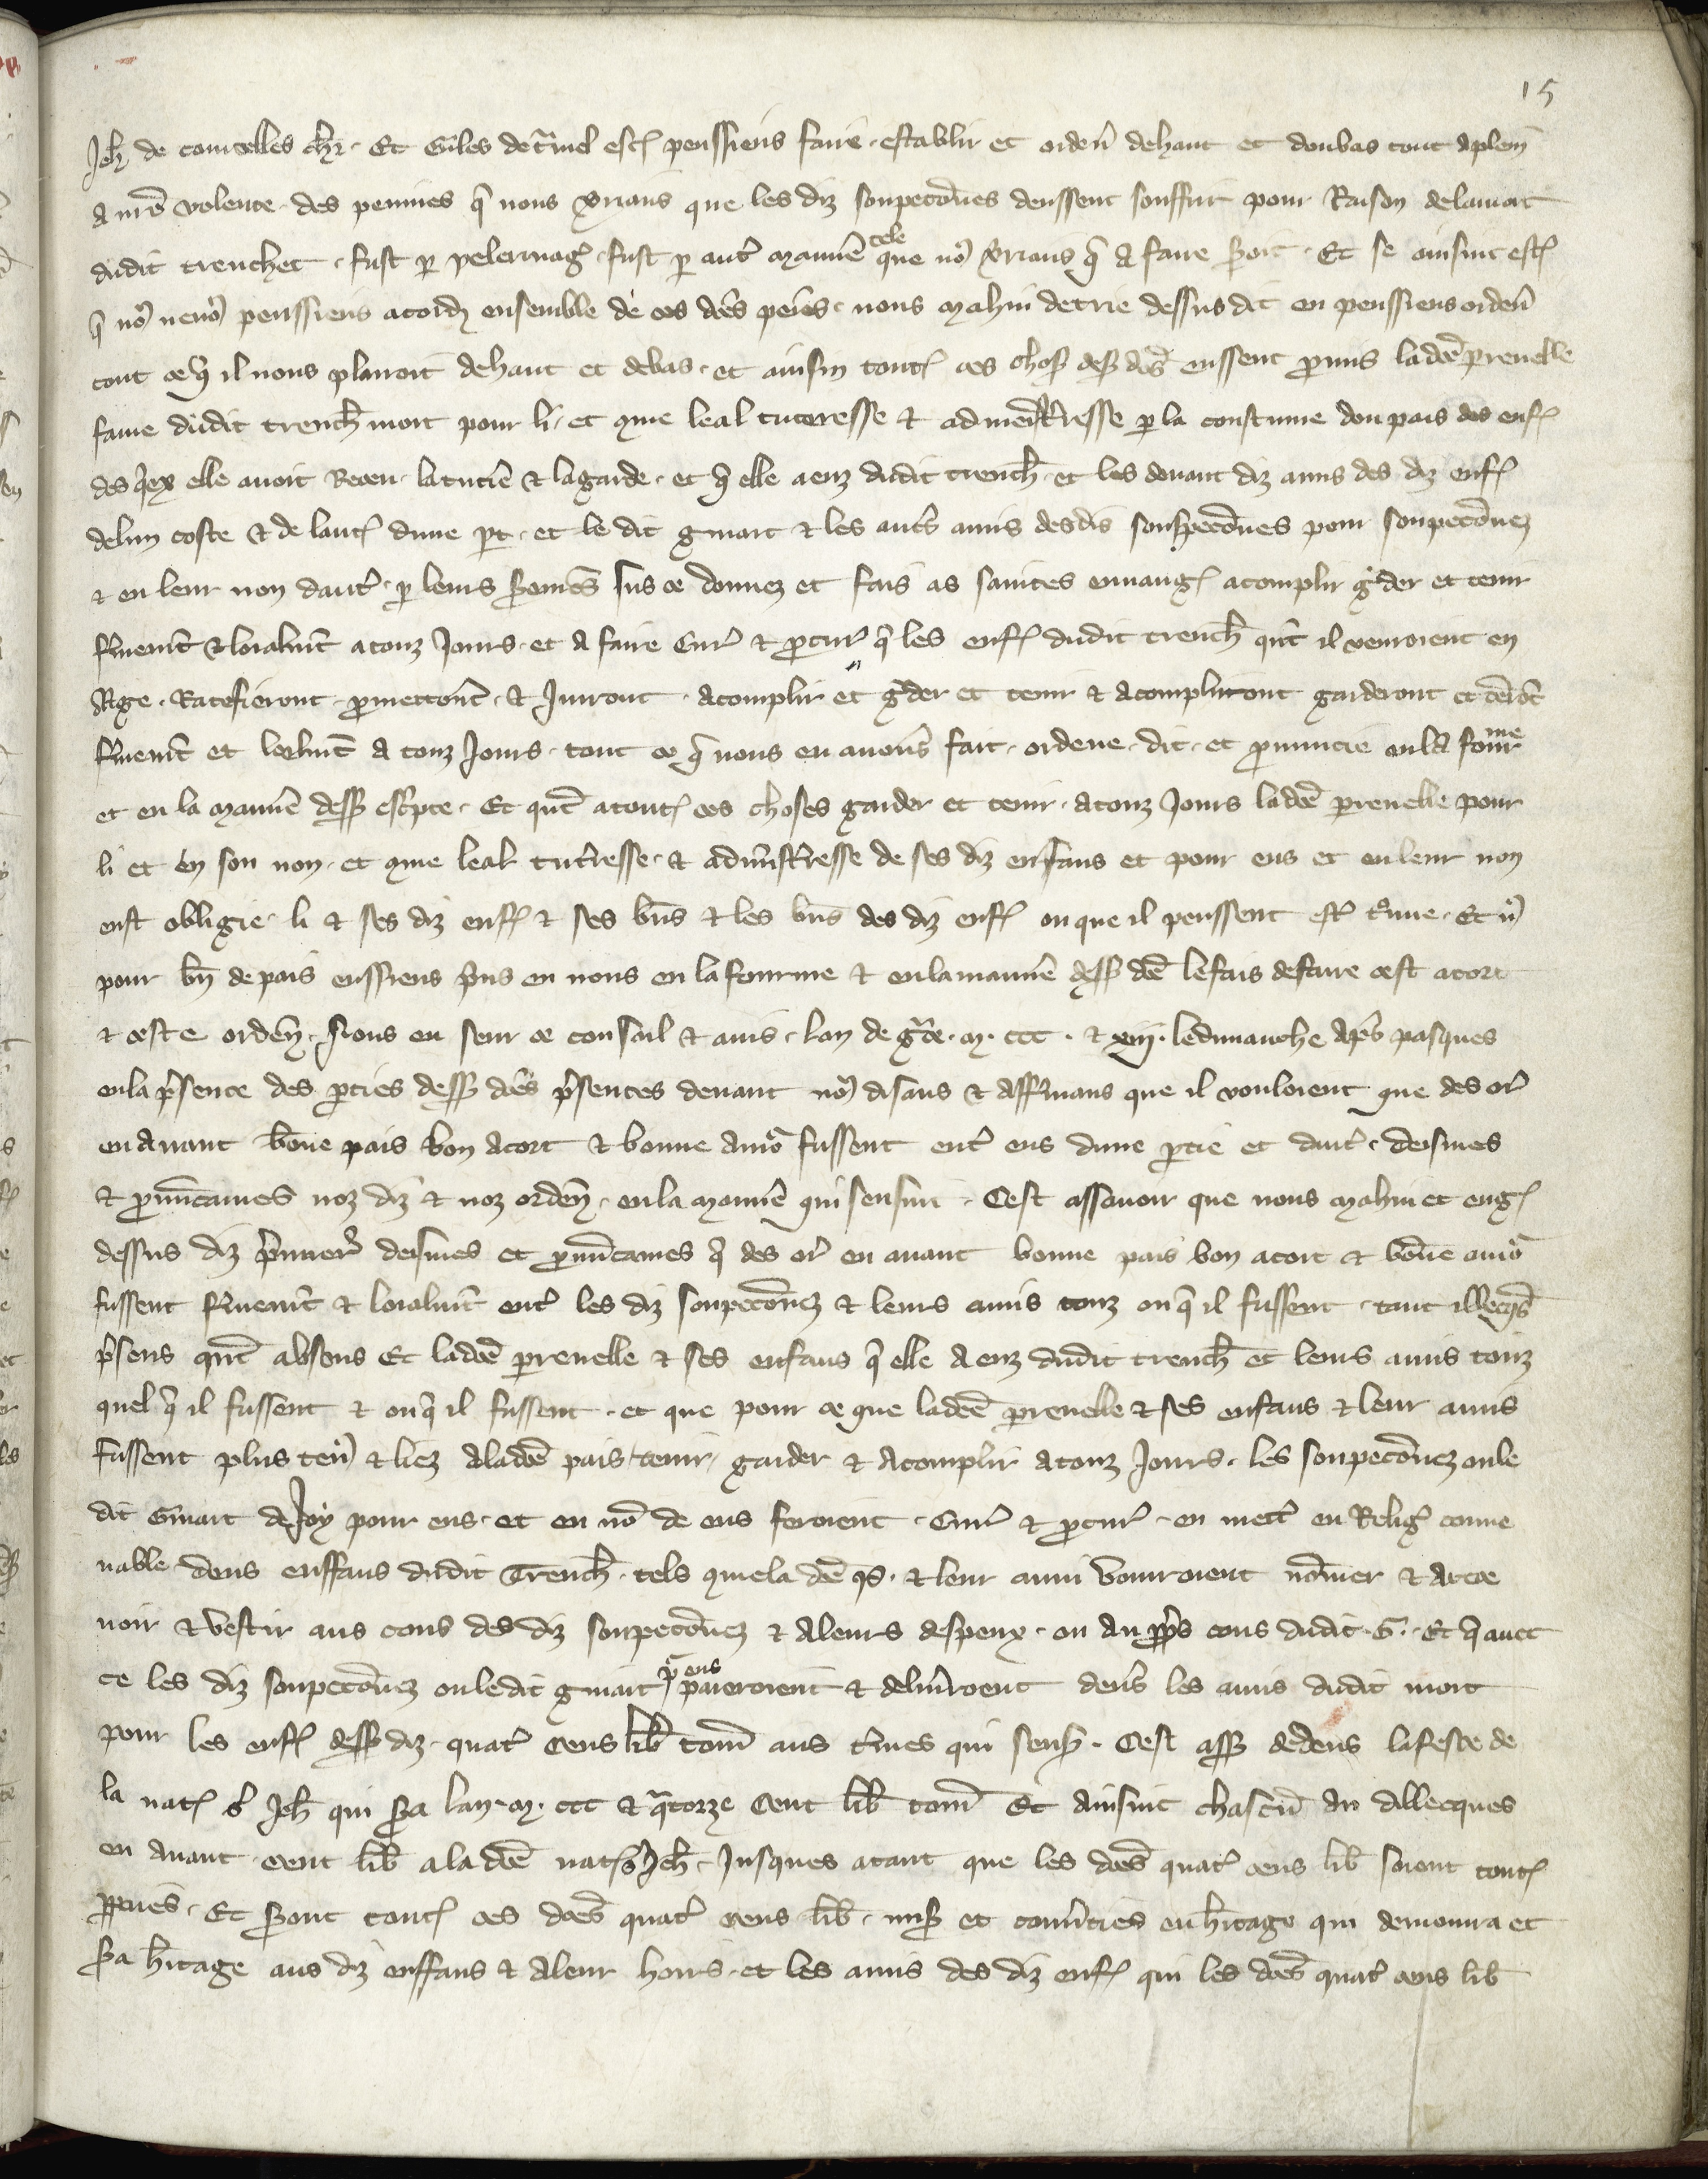 15
Jeh de courcelles chr. Et Giles de tinel esc penssiens faire. establir et orden dehaut et doubas tout aplein
A nre volente. des peinnes q nous verrians que les diz soupeconnes deussent souffrir pour Raison delamort
dudit trenchet. fust p pelerinag. fust p aut maniere tele que no verrians q A faire seroit. Et se ainsint est
q no neno penssiens acord ensemble de ces dces peines. nous mahiu detrie dessus dit en penssiens orden
tout ce q il nous plairoit dehaut et debas. et ainsin tout ces chos dess dces eussent promis ladce perrenelle
fame dudit trench mort pour li. et gme leal tuteresse & admenistresse p la coustume dou pais des enf
des qex elle auoit Receu. la tutie & lagarde. et q elle a euz dudit trench. et les deuant diz amis des diz enf
delun coste & de laut dune pt. et le dit guiart & les autres amis desdis souspeconnes pour soupeconnez
& en leur non daut. p leurs seremes sus ce donnez et fais as saintes euuang acomplir gder et tenir
fmement & loialmt atouz Jours. et A faire Cur & procur q les enf dudit trench qnt il venroient en
Age. Ratefieront. promettont. & Jurront. Acomplir et gder et tenir & Acompliront garderont et teront
fmement et loelmt A touz Jours. tout ce q nous en auons fait. ordene. dit. et pronuncie en la fourme
et en la maniere dess escpte. Et qnt atout ces choses garder et tenir. atouz Jours ladce perrenelle pour
li et en son non. et gme leal tutresse. & adminstresse de ses diz enfans et pour eus et enleur non
eust obligie. li & ses diz enf & ses bns & les bns des diz enf ou que il peussent est trouue. Et no
pour bn de pais eussiens pris en nous en la fourme & en lamaniere dess dce lefais defaire cest acort
& ceste orden. Nous eu seur ce conseil & auis. lan de gce. m. ccc. & xiii. ledimanche Apres pasques
enla psence des pties dess dces psentes deuant no disans & Affmans que il vouloient que des or
en auant bonne pais bon Acort & bonne Amo fussent ent eus dune ptie et daut. deismes
& pronuncames noz diz & noz orden. enla maniere qui sensuit. Cest assauoir que nous mahiu et eng
dessus diz pmier deismes et pronuncames q des or en auant bonne pais bon acort & bonne amo
fussent fmement & loialmt ent les diz soupeconnez & leurs amis touz ou q il fussent. tant illecqs
psens qnt absens Et ladce perrenelle & ses enfans q elle A euz dudit trench et leurs amis touz
quel q il fussent & ou q il fussent. et que pour ce que ladce perrenelle & ses enfans & leur amis
fussent plus tenu & liez Aladce pais tenir garder & Acomplir Atouz Jours. les soupeconnez oule
dit Guiart de Joy pour eus. et en no de eus feroient. Cur & procur. en mett en Relig conue
nable. deus enffans dudit Trench. tels gmela dce p. & leur ami vourroient nomer & Atce
noir & vestir aus cous des diz soupeconnez & Aleurs despeux. ou Au ppres cous dudit. G. Et q auec
ce les diz soupeconnez ouledit guiart p eus paieroient & deliuroent deus les amis dudit mort
pour les enf dess diz. quat cens lib torn aus tmes qui sens. Cest ass dedens lafeste de
la nat s Jeh qui sera lan. m. ccc & qtorze Cent lib torn Et Ainsint chascun an dillecques
en Auant cent lib a la dce nat s Jeh. Jusques atant que les dces quat cens lib soient tout
ppaies. Et seront tout ces dces quat cens lib. mis et couuties en hitage qui demoura et
sera hitage aus diz enffans & Aleur hoirs. et les amis des diz enf qui les dces quat cens lib